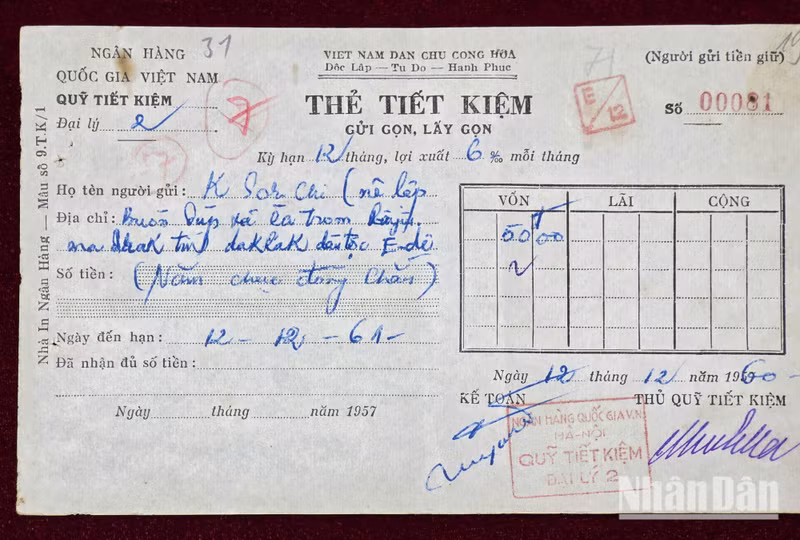 NGÂN HÀNG
QUỐC GIA VIỆT NAM
QUỸ TIẾT KIỆM
Đại lý 2
31
7
57
VIET NAM DAN CHU CONG HOA
Dôc Lâp — Tu Do — Hanh Phuc
THẺ TIẾT KIỆM
GỬI GỌN, LẤY GỌN
Kỳ hạn 12 tháng, lợi xuất 6 ‰ mỗi tháng
71
E/12
(Người gửi tiền giữ)
Số 00081
Nhà In Ngân Hàng — Mẫu số 9.T.K/1
Họ tên người gửi : K Sor Chi (
Địa chỉ : Buôn xã
tỉnh daklak dân tộc E-đê
Số tiền : (Năm chục đồng chẵn)
Ngày đến hạn : 12 - 12 - 61 -
Đã nhận đủ số tiền :
Ngày tháng năm 1957
VỐN LÃI CỘNG
50 00
Ngày 12 tháng 12 năm 1960 -
KẾ TOÁN THỦ QUỸ TIẾT KIỆM
NGÂN HÀNG QUỐC GIA V.N
HÀ-NỘI
QUỸ TIẾT KIỆM
ĐẠI LÝ 2
NhânDân